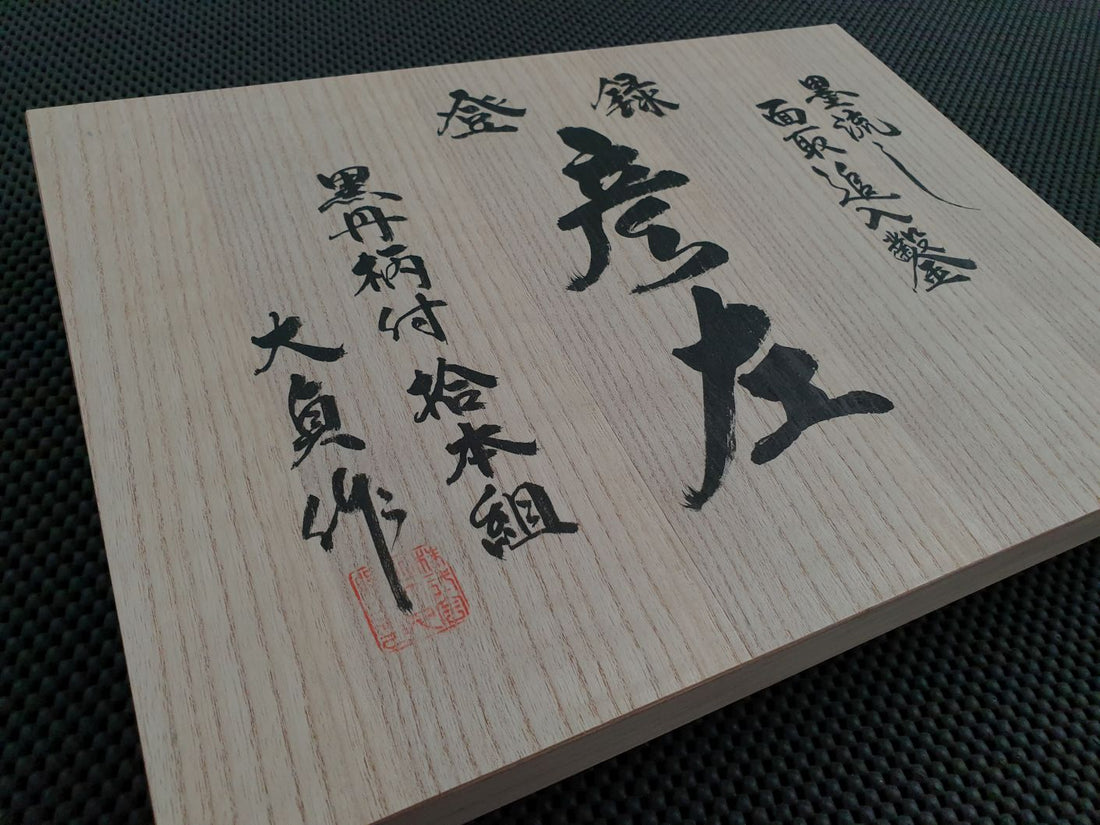 墨流し
面取追入鑿
登録
彦左
黒丹柄付拾本組
大貞作